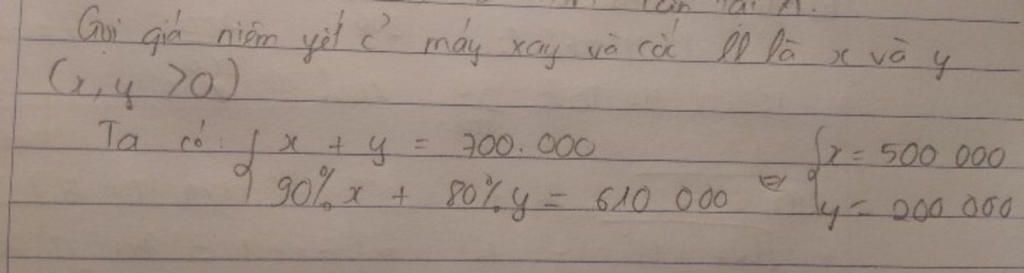 Gọi giá niêm yết ở máy xay và các ll là x và y
(x, y > 0)
Ta có: { x + y = 700.000 { x = 500 000
90% x + 80% y = 610 000 ⇔ y = 200 000